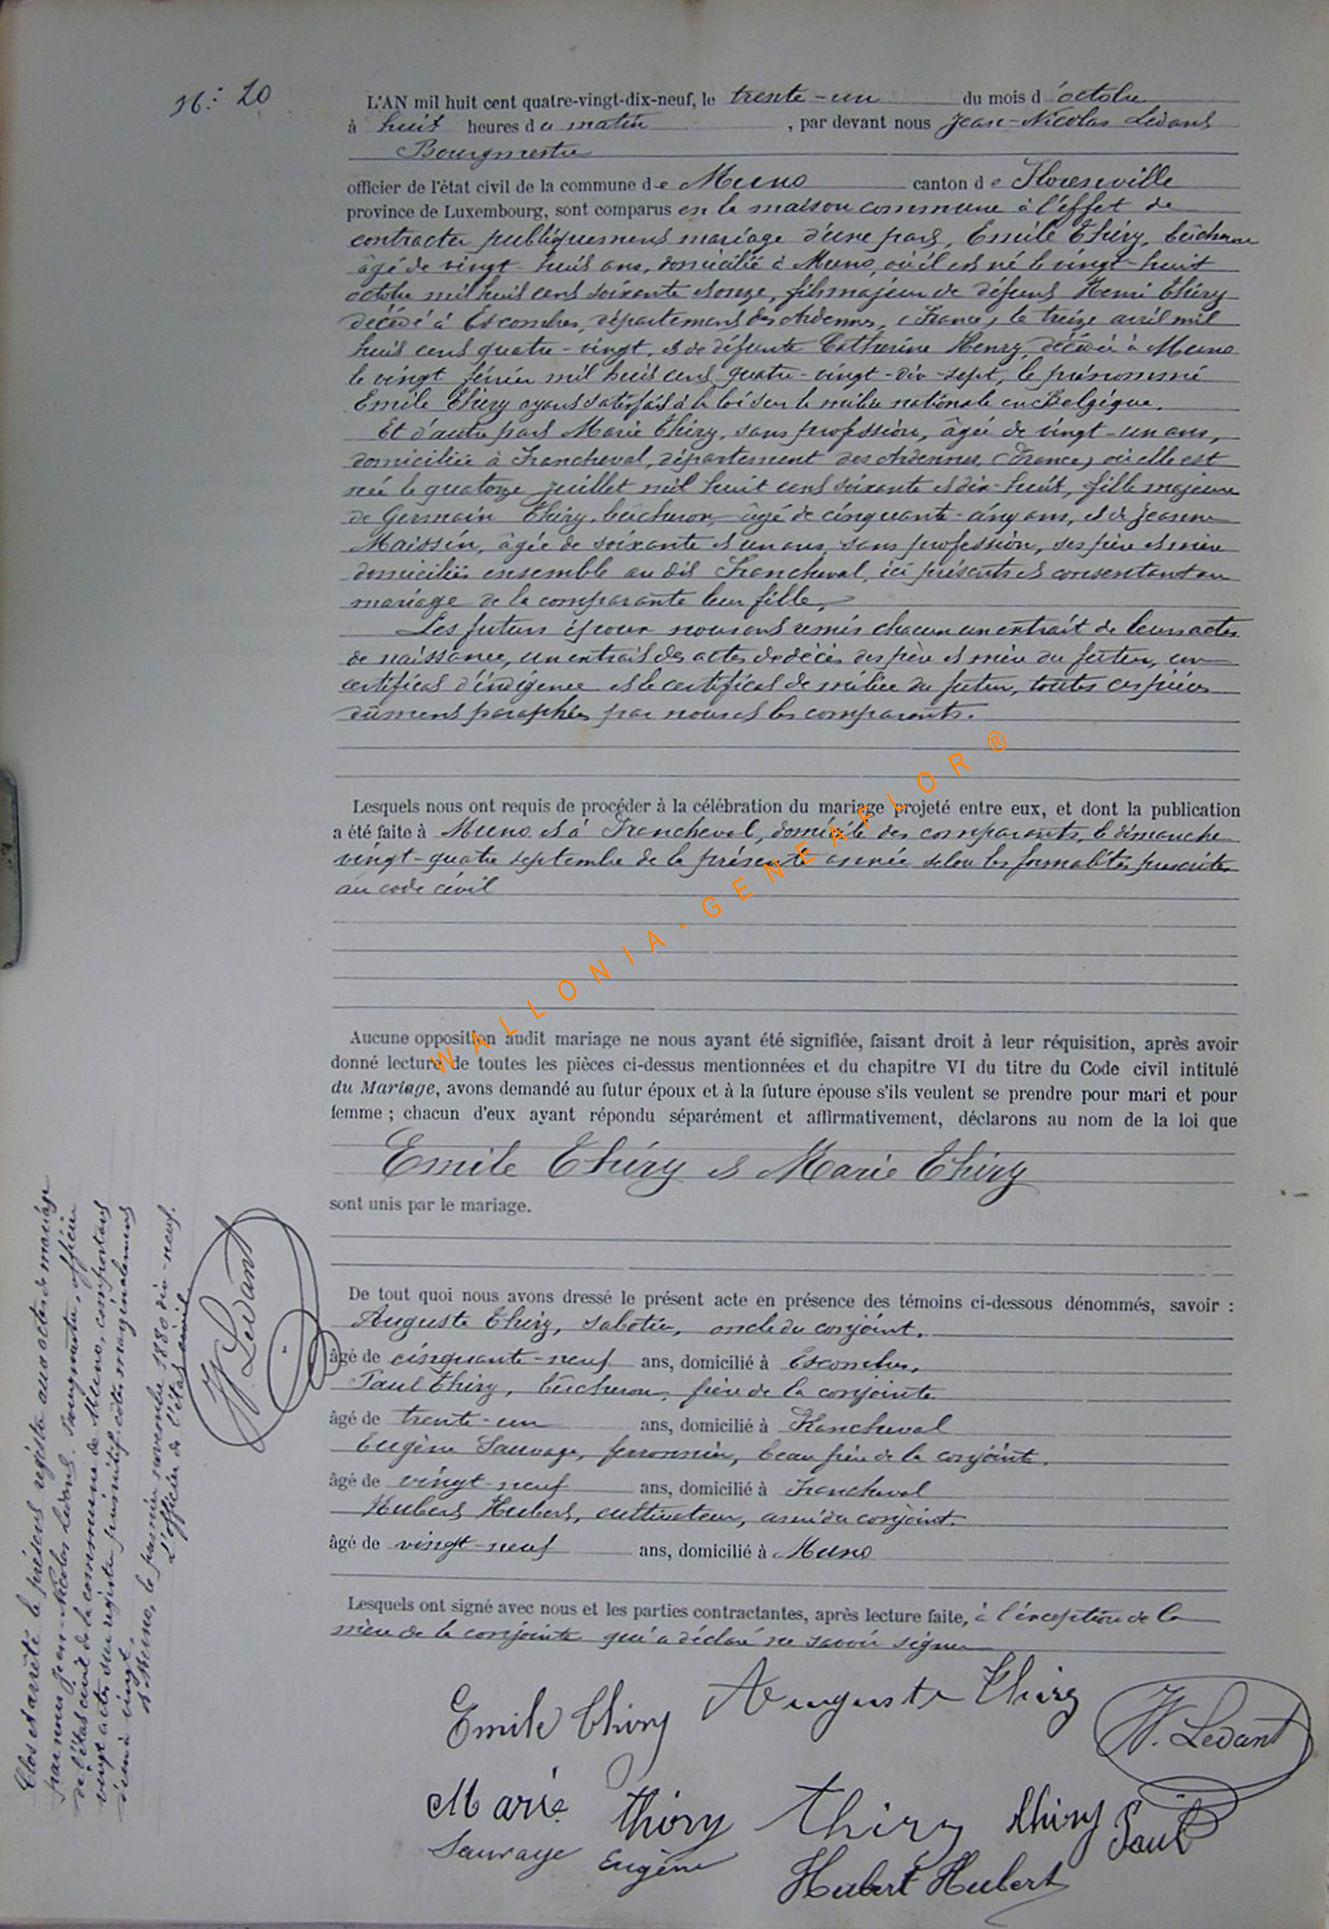 N° 20
L'AN mil huit cent quatre-vingt-dix-neuf, le trente-un du mois d'octobre
à huit heures du matin, par devant nous Jean-Nicolas Ledant
Bourgmestre
officier de l'état civil de la commune de Muno canton de Florenville
province de Luxembourg, sont comparus en la maison commune à l'effet de
contracter publiquement mariage d'une part, Emile Thiry, bûcheron
âgé de vingt-huit ans, domicilié à Muno, où il est né le vingt-huit
octobre mil huit cent soixante et onze, fils majeur de défunt Henri Thiry
décédé à Escombres, département des Ardennes, (France) le treize avril mil
huit cent quatre-vingt, et de défunte Catherine Henry, décédée à Muno
le vingt février mil huit cent quatre-vingt-dix-sept, le prénommé
Emile Thiry ayant satisfait à la loi sur la milice nationale en Belgique.
Et d'autre part Marie Thiry, sans profession, âgée de vingt-un ans,
domiciliée à Francheval, département des Ardennes, (France) où elle est
née le quatorze juillet mil huit cent soixante et dix-huit, fille majeure
de Germain Thiry, bûcheron, âgé de cinquante-cinq ans, et de Jeanne
Maissin, âgée de soixante et un ans, sans profession, ses père et mère
domiciliés ensemble au dit Francheval, ici présents et consentant au
mariage de la comparante leur fille.
Les futurs époux nous ont remis chacun un extrait de leurs actes
de naissance, un extrait des actes de décès des père et mère du futur, un
certificat d'indigence et le certificat de milice du futur, toutes ces pièces
dûment paraphées par nous et les comparants.
Lesquels nous ont requis de procéder à la célébration du mariage projeté entre eux, et dont la publication
a été faite à Muno et à Francheval, domicile des comparants, le dimanche
vingt-quatre septembre de la présente année selon les formalités prescrites
au code civil
WALLONIA-GENEAFLOR ®
Aucune opposition audit mariage ne nous ayant été signifiée, faisant droit à leur réquisition, après avoir
donné lecture de toutes les pièces ci-dessus mentionnées et du chapitre VI du titre du Code civil intitulé
du Mariage, avons demandé au futur époux et à la future épouse s'ils veulent se prendre pour mari et pour
femme ; chacun d'eux ayant répondu séparément et affirmativement, déclarons au nom de la loi que
Emile Thiry et Marie Thiry
sont unis par le mariage.
De tout quoi nous avons dressé le présent acte en présence des témoins ci-dessous dénommés, savoir :
Auguste Thiry, sabotier, oncle du conjoint,
âgé de cinquante-neuf ans, domicilié à Escombres,
Paul Thiry, bûcheron, frère de la conjointe
âgé de trente-un ans, domicilié à Francheval
Eugène Sauvage, ferronnier, beau frère de la conjointe,
âgé de vingt-neuf ans, domicilié à Francheval
Hubert Hubert, cultivateur, ami du conjoint.
âgé de vingt-neuf ans, domicilié à Muno
Lesquels ont signé avec nous et les parties contractantes, après lecture faite, à l'exception de la
mère de la conjointe qui a déclaré ne savoir signer
Emile Thiry Auguste Thiry JN. Ledant
Marie Thiry Thiry Thiry Paul
Sauvage Eugène Hubert Hubert
Clos et arrêté le présent registre aux actes de mariage
par nous Jean-Nicolas Ledant, bourgmestre, officier
de l'état civil de la commune de Muno, comportant
vingt actes sur registre primitif cotés marginalement
d'un à vingt.
A Muno, le premier novembre 1880 dix-neuf.
L'officier de l'état civil
JN. Ledant